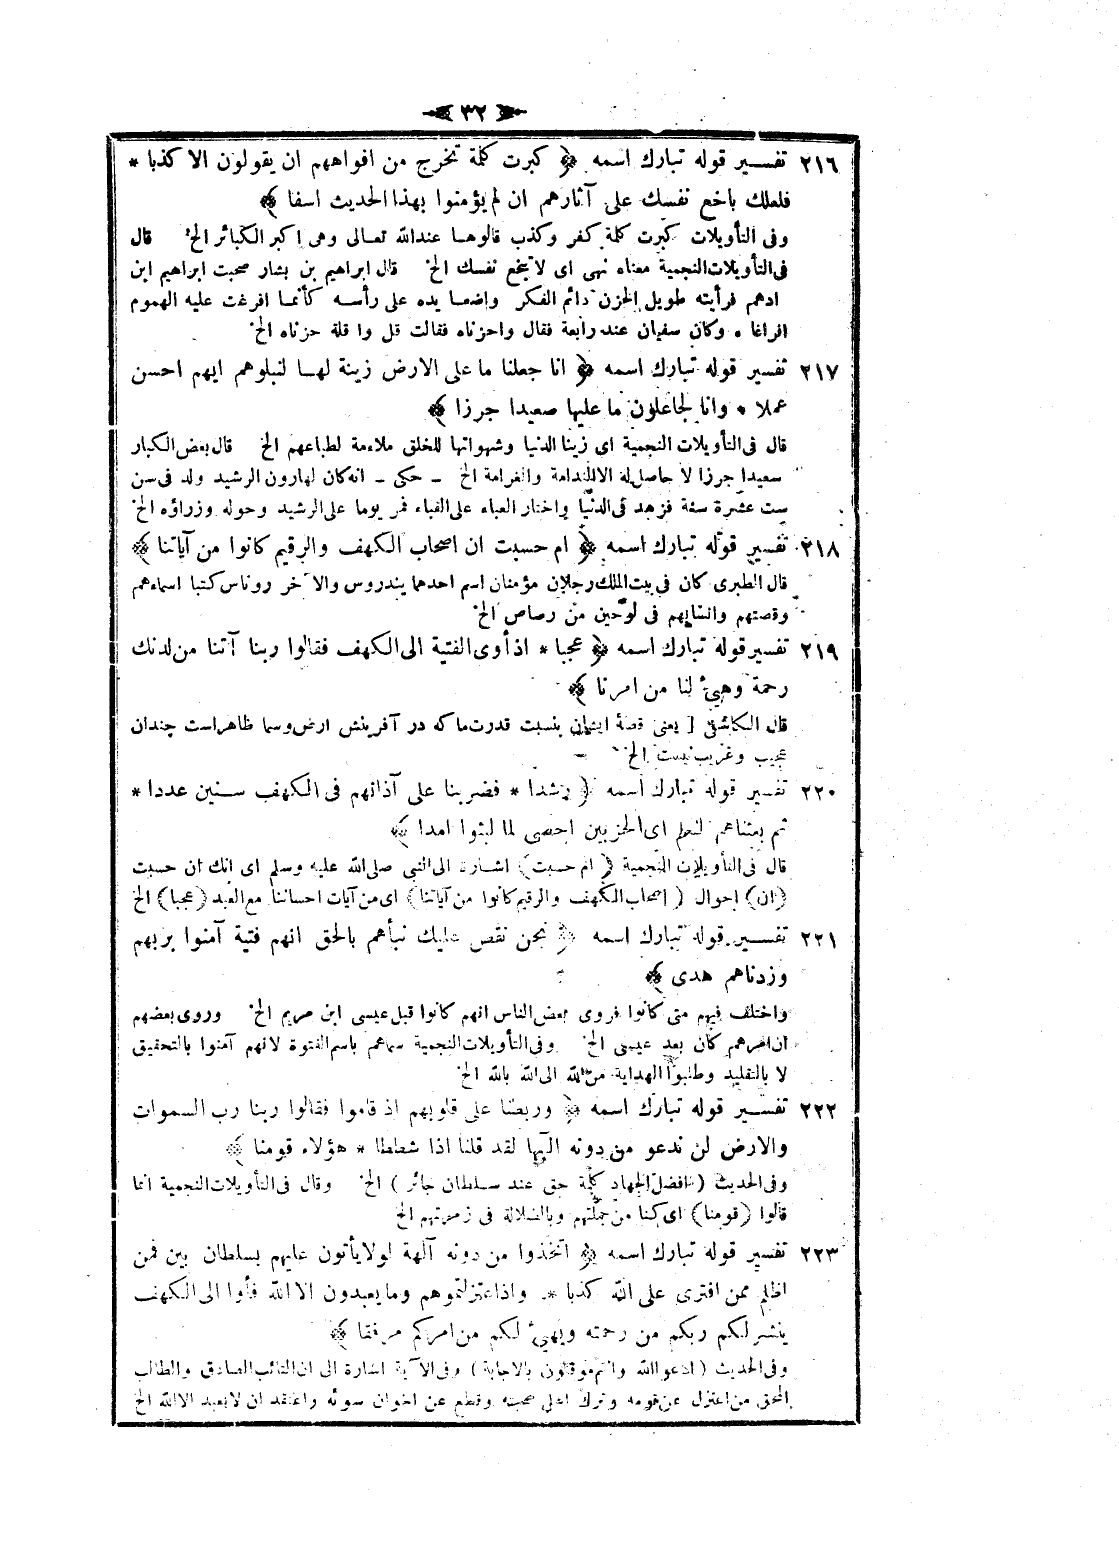 ٣٢
٢١٦ تفسير قوله تبارك اسمه ﴿ كبرت كلمة تخرج من افواههم ان يقولون الا كذبا *
فلعلك باخع نفسك على آثارهم ان لم يؤمنوا بهذا الحديث اسفا ﴾
وفى التأويلات كبرت كلمة كفر وكذب قالوها عندالله تعالى وهى اكبر الكبائر الخ قال
فى التأويلات النجمية معناه نهى اى لا تبخع نفسك الخ قال ابراهيم بن بشار صحبت ابراهيم ابن
ادهم فرأيته طويل الحزن دائم الفكر واضعا يده على رأسه كأنما افرغت عليه الهموم
افراغا * وكان سفيان عند رابعة فقال واحزناه فقالت قل وا قلة حزناه الخ
٢١٧ تفسير قوله تبارك اسمه ﴿ انا جعلنا ما على الارض زينة لها لنبلوهم ايهم احسن
عملا * وانا لجاعلون ما عليها صعيدا جرزا ﴾
قال فى التأويلات النجمية اى زينا الدنيا وشهواتها للخلق ملاءمة لطباعهم الخ قال بعض الكبار
سعيدا جرزا لا حاصل له الا الندامة والغرامة الخ - حكى - انه كان لهارون الرشيد ولد فى سن
ست عشرة سنة فزهد فى الدنيا واختار العباء على القباء فمر يوما على الرشيد وحوله وزراؤه الخ
٢١٨ تفسير قوله تبارك اسمه ﴿ ام حسبت ان اصحاب الكهف والرقيم كانوا من آياتنا ﴾
قال الطبرى كان فى بيت الملك رجلان مؤمنان اسم احدهما يندروس والآخر روناس كتبا اسماءهم
وقصتهم وانسابهم فى لوحين من رصاص الخ
٢١٩ تفسير قوله تبارك اسمه ﴿ عجبا * اذ أوى الفتية الى الكهف فقالوا ربنا آتنا من لدنك
رحمة وهيئ لنا من امرنا ﴾
قال الكاشفى [ يعنى قصهٔ ايشان بنسبت قدرت ما كه در آفرينش ارض وسما ظاهراست چندان
عجيب وغريب نيست الخ
٢٢٠ تفسير قوله تبارك اسمه ﴿ رشدا * فضربنا على آذانهم فى الكهف سنين عددا *
ثم بعثناهم لنعلم اى الحزبين احصى لما لبثوا امدا ﴾
قال فى التأويلات النجمية ( ام حسبت ) اشارة الى النبى صلى الله عليه وسلم اى انك ان حسبت
(ان) احوال ( اصحاب الكهف والرقيم كانوا من آياتنا ) اى من آيات احساننا مع العبد (عجبا) الخ
٢٢١ تفسير قوله تبارك اسمه ﴿ نحن نقص عليك نبأهم بالحق انهم فتية آمنوا بربهم
وزدناهم هدى ﴾
واختلف فيهم متى كانوا فروى بعض الناس انهم كانوا قبل عيسى ابن مريم الخ وروى بعضهم
ان امرهم كان بعد عيسى الخ وفى التأويلات النجمية سماهم باسم الفتوة لانهم آمنوا بالتحقيق
لا بالتقليد وطلبوا الهداية من الله الى الله بالله الخ
٢٢٢ تفسير قوله تبارك اسمه ﴿ وربطنا على قلوبهم اذ قاموا فقالوا ربنا رب السموات
والارض لن ندعو من دونه الها لقد قلنا اذا شططا * هؤلاء قومنا ﴾
وفى الحديث ( افضل الجهاد كلمة حق عند سلطان جائر ) الخ وقال فى التأويلات النجمية انما
قالوا ( قومنا ) اى كنا من جملتهم وبالضلالة فى زمرتهم الخ
٢٢٣ تفسير قوله تبارك اسمه ﴿ اتخذوا من دونه آلهة لولا يأتون عليهم بسلطان بين فمن
اظلم ممن افترى على الله كذبا * واذ اعتزلتموهم وما يعبدون الا الله فأوا الى الكهف
ينشر لكم ربكم من رحمته ويهيئ لكم من امركم مرفقا ﴾
وفى الحديث ( ادعوا الله وانتم موقنون بالاجابة ) وفى الآية اشارة الى ان التائب الصادق والطالب
المحق من اعتزل عن قومه وترك اهل صحبته وقطع عن اخوان سوئه واعتقد ان لا يعبد الا الله الخ